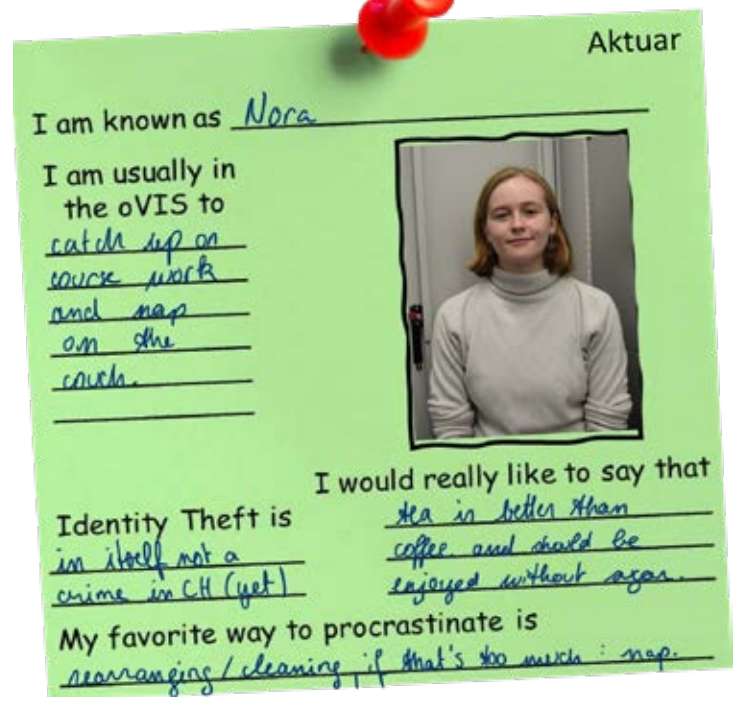 Aktuar
I am known as Nora
I am usually in
the oVIS to
catch up on
course work
and nap
on the
couch.
I would really like to say that
tea is better than
coffee and should be
enjoyed without
Identity Theft is
in itself not a
crime in CH (yet)
My favorite way to procrastinate is
rearranging / cleaning, if that's too much : nap.